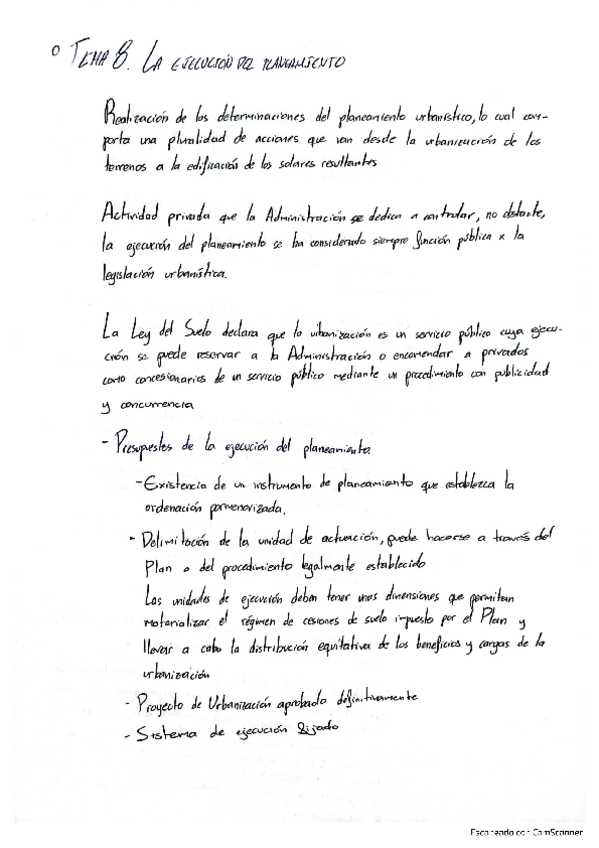 o TEMA 8. LA EJECUCIÓN DEL PLANEAMIENTO
Realización de las determinaciones del planeamiento urbanístico, lo cual com-
porta una pluralidad de acciones que van desde la urbanización de los
terrenos a la edificación de los solares resultantes
Actividad privada que la Administración se dedica a controlar, no obstante,
la ejecución del planeamiento se ha considerado siempre función pública x la
legislación urbanística.
La Ley del Suelo declara que la urbanización es un servicio público cuya ejecu-
ción se puede reservar a la Administración o encomendar a privados
como concesionarios de un servicio público mediante un procedimiento con publicidad
y concurrencia
- Presupuestos de la ejecución del planeamiento
- Existencia de un instrumento de planeamiento que establezca la
ordenación pormenorizada.
- Delimitación de la unidad de actuación, puede hacerse a través del
Plan o del procedimiento legalmente establecido
Las unidades de ejecución deben tener unas dimensiones que permitan
materializar el régimen de cesiones de suelo impuesto por el Plan y
llevar a cabo la distribución equitativa de los beneficios y cargas de la
urbanización
- Proyecto de Urbanización aprobado definitivamente
- Sistema de ejecución fijado
Escaneado con CamScanner